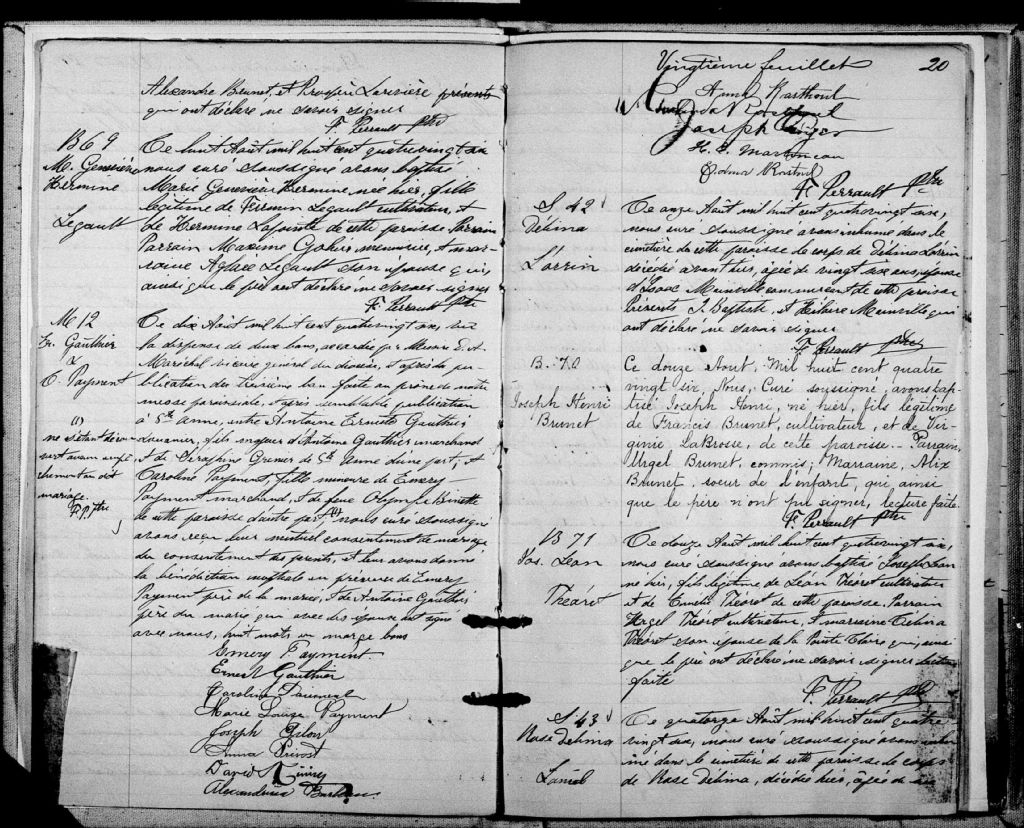 Alexandre Brunet et Prosper Larivière présents
qui ont déclaré ne savoir signer
F. Perrault Ptre
B 69
M. Geneviève
Hermine
Legault
Ce huit Août mil huit cent quatrevingt six
nous curé soussigné avons baptisé
Marie Geneviève Hermine, née hier, fille
légitime de Ferman Legault cultivateur, et
de Hermine Lapointe de cette paroisse Parrain
Parrain Maxime Gohier menuisier, et mar-
raine Aglaée Legault son épouse qui,
ainsi que le père ont déclaré ne savoir signer
F. Perrault Ptre
M 12
Er. Gauthier
&
C. Payment
(1)
ne s'étant décou-
vert aucun empê-
chement au dit
mariage.
F.P. Ptre
Ce dix Août mil huit cent quatrevingt six, vu
la dispense de deux bans, accordée par Messire
Maréchal vicaire général du diocèse, et après la pu-
blication du troisième ban faite au prône de notre
messe paroissiale, et après semblable publication
à Ste Anne, entre Antoine Ernest Gauthier
douanier, fils majeur d'Antoine Gauthier marchand
et de Séraphine Grenier de Ste Anne d'une part, et
Caroline Payment, fille mineure de Emery
Payment marchand, et de feue Olympe
de cette paroisse d'autre part, (1) nous curé soussigné
avons reçu leur mutuel consentement de mariage
du consentement des parents, et leur avons donné
la bénédiction nuptiale en présence de Emery
Payment père de la mariée, et de Antoine Gauthier
père du marié qui avec les époux ont signé
avec nous, huit mots en marge bons
Emery Payment.
Ernest Gauthier
Caroline Paiement
Marie Louise Payment
Joseph
Anna Prévost
David
Alexandrina
Vingtième feuillet
20
Anna Rasthoul
Joseph
H. S. Martineau
Edma
F. Perrault Ptre
S 42
Délima
Lorrin
Ce onze Août mil huit cent quatrevingt six,
nous curé soussigné avons inhumé dans le
cimetière de cette paroisse le corps de Délima Lorrin
décédée avant hier, âgée de vingt six ans, épouse
d'Isaac Meinville commerçant de cette paroisse
Présents J. Baptiste, et Hilaire Meinville qui
ont déclaré ne savoir signer
F. Perrault Ptre
B. 70
Joseph Henri
Brunet
Ce douze Aout, Mil huit cent quatre
vingt six, Nous, Curé soussigné, avons bap-
tisé Joseph Henri, né hier, fils légitime
de Francis Brunet, cultivateur, et de Vir-
ginie LaBrosse, de cette paroisse. Parrain,
Urgel Brunet, commis; Marraine, Alix
Brunet, soeur de l'enfant, qui ainsi
que le père n'ont pu signer, lecture faite.
F. Perrault Ptre
B 71
Jos. Jean
Théoret
Ce douze Août mil huit cent quatrevingt six,
nous curé soussigné avons baptisé Joseph Jean
né hier, fils légitime de Jean Théoret cultivateur
et de Emelie Théoret de cette paroisse, Parrain
Théoret cultivateur, et marraine Délima
Théoret son épouse de la Pointe Claire qui, ainsi
que le père ont déclaré ne savoir signer lecture
faite
F. Perrault Ptre
S 43
Rose Délima
Laniel
Ce quatorze Août mil huit cent quatre
vingt six, nous curé soussigné avons inhu-
mé dans le cimetière de cette paroisse le corps
de Rose Délima, décédée hier, âgée de six